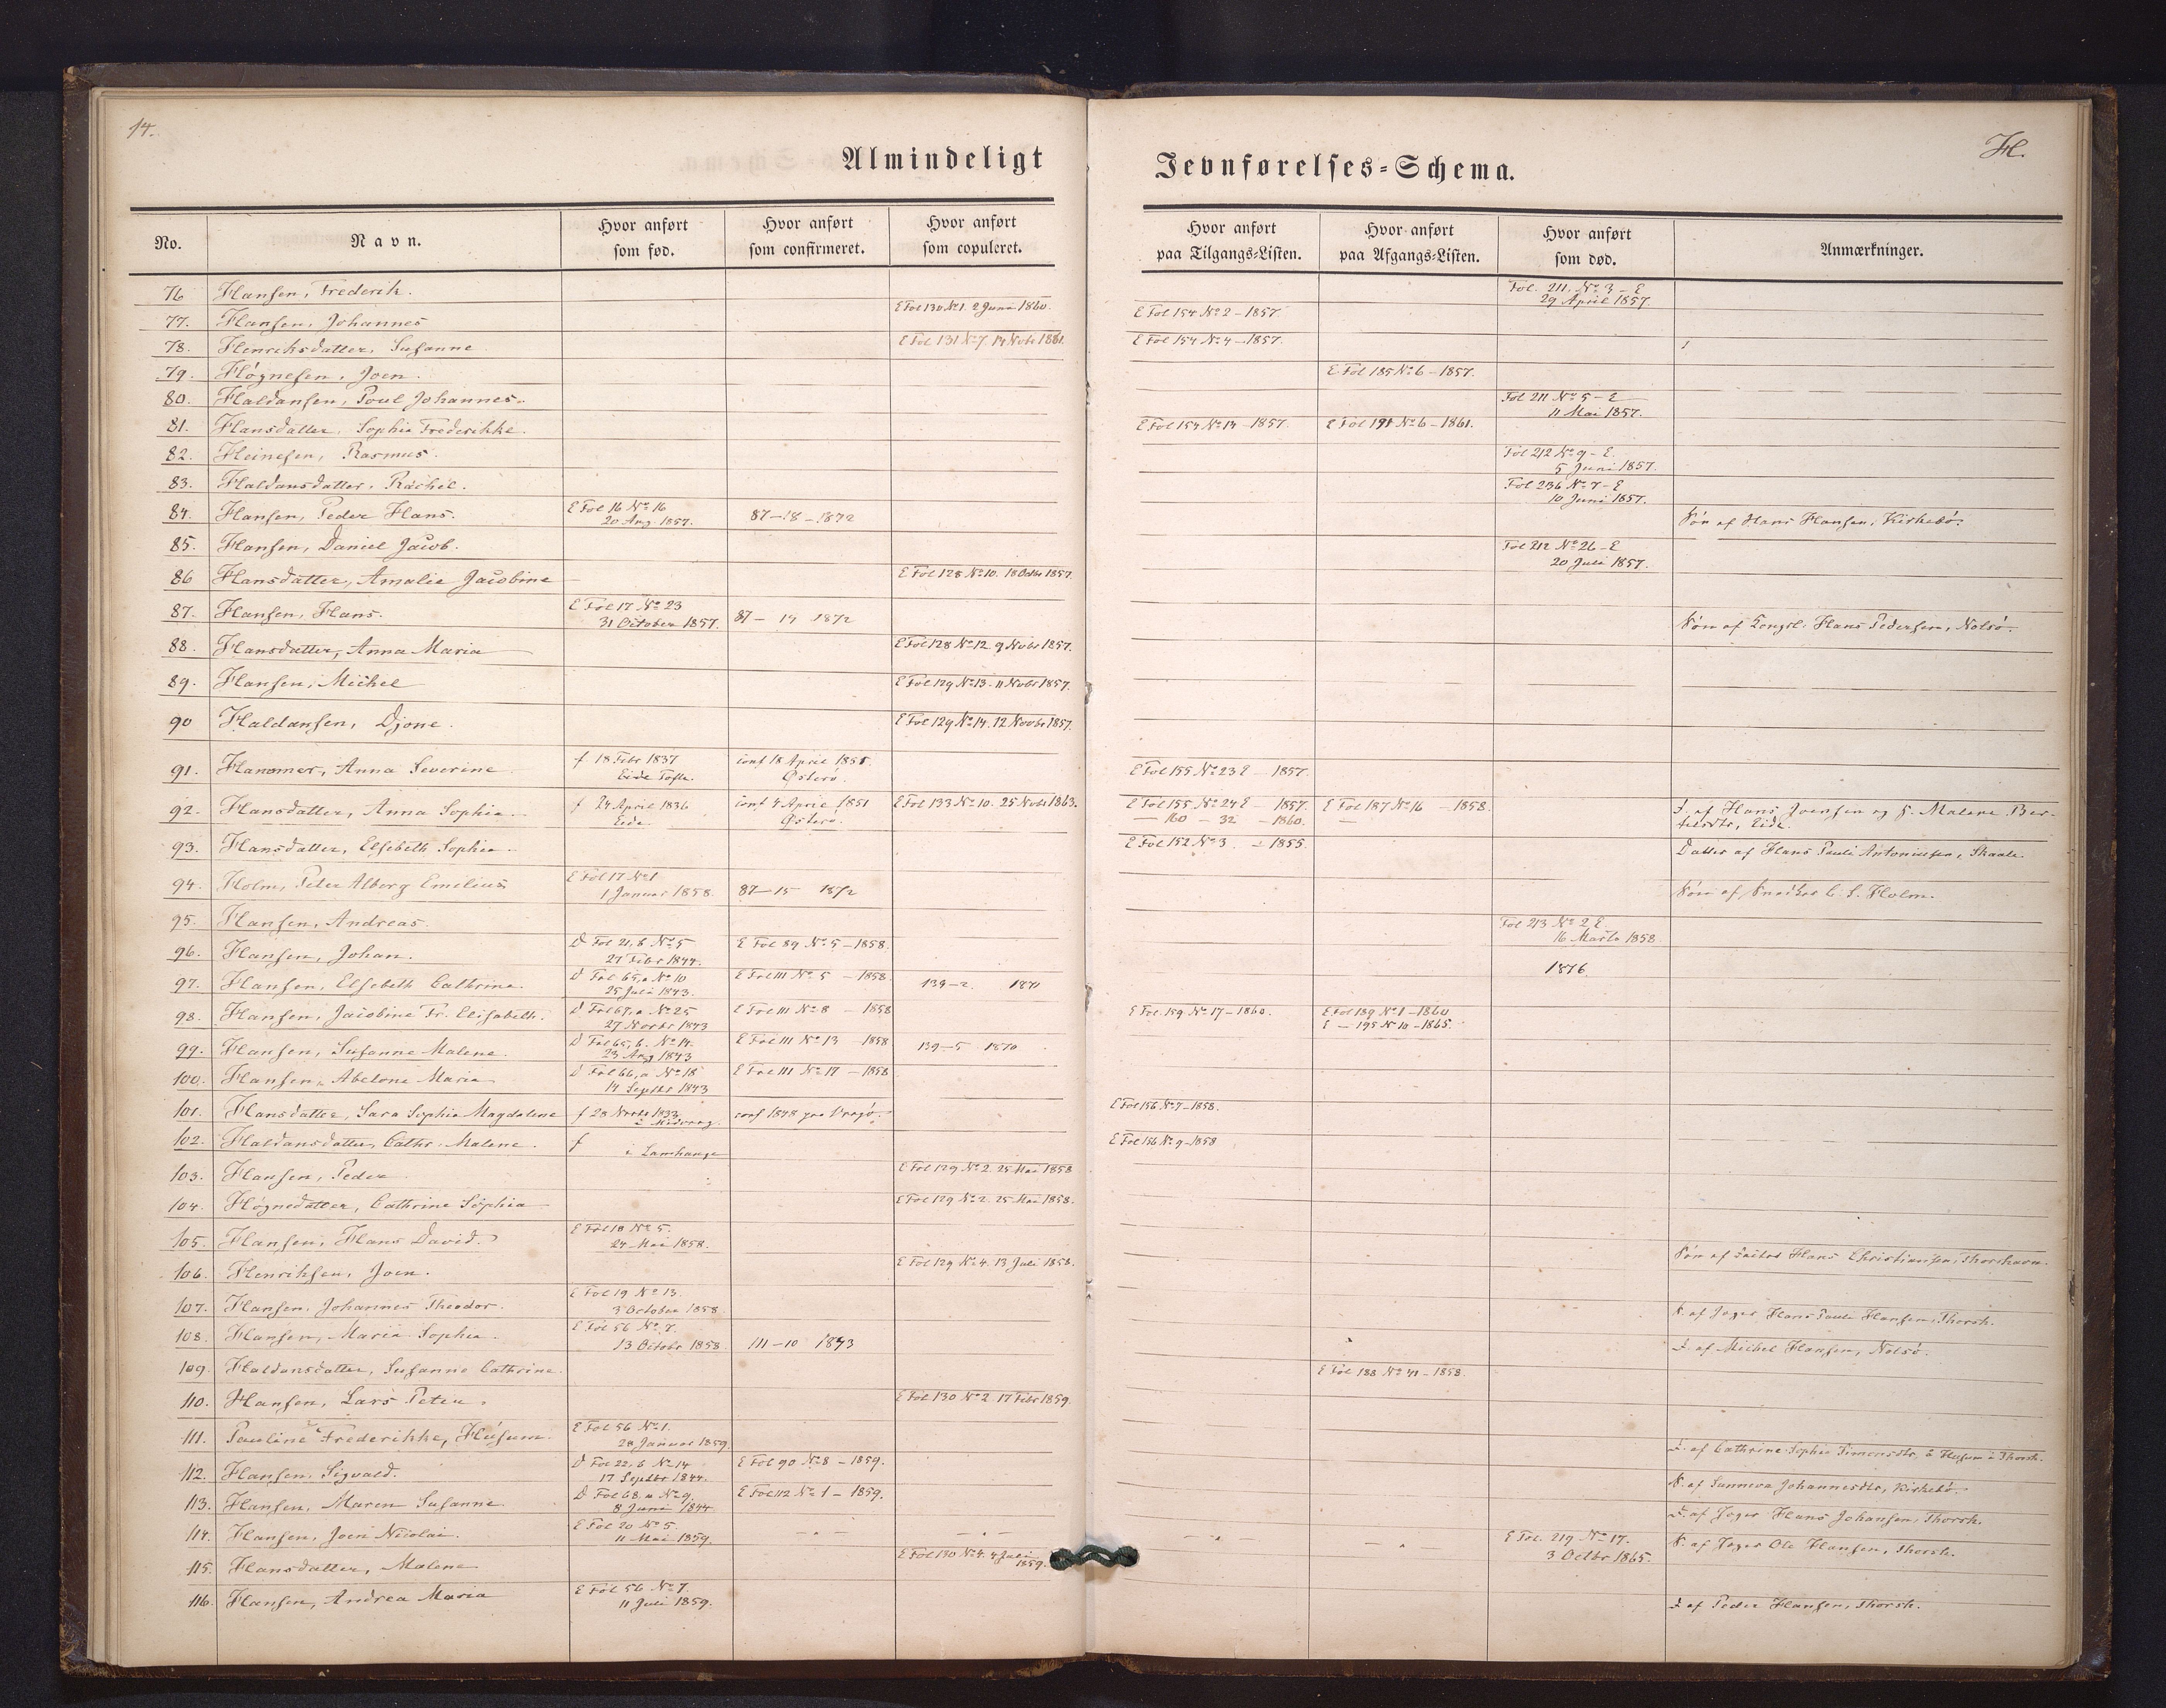 14.
H.
Almindeligt Jevnførelses-Schema.
No. | Navn. | Hvor anført som fød. | Hvor anført som confirmeret. | Hvor anført som copuleret. | Hvor anført paa Tilgangs-Listen. | Hvor anført paa Afgangs-Listen. | Hvor anført som død. | Anmærkninger.
76 Hansen, Frederik. Fol. 211. No 3 - E 29 April 1857.
77. Hansen, Johannes E Fol 130 No 1. 2 Juni 1860. E Fol 154 No 2 - 1857
78. Henriksdatter, Susanne E Fol 131 No 7 14 Novbr 1861. E Fol 154 No 4 - 1857.
79. Høgnesen, Joen. E Fol 185 No 6 - 1857.
80. Haldansen, Poul Johannes. Fol 211 No 5 - E 11 Mai 1857.
81. Hansdatter, Sophie Frederikke. E Fol 154 No 14 - 1857. E Fol 191 No 6 - 1861.
82. Heinesen, Rasmus. Fol 212 No 9 - E. 5 Juni 1857.
83. Haldansdatter, Rachel. Fol 236 No 7 - E 10 Juni 1857.
84. Hansen, Peder Hans. E Fol 16 No 16 20 Aug. 1857. 87-18-1872 Søn af Hans Hansen, Kirkebø.
85. Hansen, Daniel Jacob. Fol 212 No 26 - E 20 Juli 1857.
86 Hansdatter, Amalie Jacobine E Fol 128 No 10. 18 Octbr 1857.
87. Hansen, Hans. E Fol 17 No 23 31 October 1857. 87 - 14 1872 Søn af Hans Pedersen, Nolsø.
88. Hansdatter, Anna Maria E Fol 128 No 12. 9 Novbr 1857.
89. Hansen, Michel E Fol 129 No 13. 11 Novbr 1857.
90 Haldansen, Djone. E Fol 129 No 14. 12 Novbr 1857.
91. Hammer, Anna Severine f 18 Febr 1837 Eide conf 18 April 1851. Østerø. E Fol 155 No 23 E - 1857.
92. Hansdatter, Anna Sophie. f 24 April 1836 Eide. conf 4 April 1851 Østerø. E Fol 133 No 10. 25 Novbr 1863. E Fol 155 No 24 E - 1857. — 160 — 32 — 1860. E Fol 187 No 16 - 1858. D. af Hans Joensen og H. Malene Ber-
telsdtr, Eide.
93. Hansdatter, Elsebeth Sophie. E Fol 152 No 3. - 1855. Datter af Hans Pauli Antoniusen, Skaale.
94. Holm, Peter Alberg Emelius E Fol 17 No 1 1 Januar 1858. 87-15 1872 Søn af Snedker C. S. Holm.
95. Hansen, Andreas. Fol 213 No 2 E. 16 Marts 1858
96. Hansen, Johan. D Fol 21, b No 5 27 Febr 1844. E Fol 89 No 5 - 1858.
97. Hansen, Elsebeth Cathrine. D Fol 65, a No 10 25 Juli 1843. E Fol 111 No 5 - 1858. 139-2. 1870 1876.
98. Hansen, Jacobine Fr. Elisabeth. D Fol 67, a No 25 27 Novbr 1843 E Fol 111 No 8 - 1858 E Fol. 159 No 17 - 1860. E Fol 189 No 1 - 1860 E — 195 No 10 - 1865.
99. Hansen, Susanne Malene. D Fol 65, b. No 14. 23 Aug 1843 E Fol 111 No 13 - 1858 139-5 1870
100. Hansen, Abelone Maria D Fol 66, a No 18 14 Septbr 1843 E Fol 111 No 17 - 1858
101. Hansdatter, Sara Sophie Magdalene f 28 Novbr 1833 i Midvaag conf 1848 paa Vaagø. E Fol 156 No 7 - 1858.
102. Haldansdatter, Cathr. Malene. f i Lamhauge E Fol 156 No 9 - 1858
103. Hansen, Peder E Fol 129 No 2. 25 Mai 1858
104. Høgnedatter, Cathrine Sophia E Fol 129 No 2. 25 Mai 1858.
105. Hansen, Hans David. E Fol 18 No 5. 24 Mai 1858. Søn af Hans Christiansen, Thorshavn.
106. Henriksen, Joen. E Fol 129 No 4. 13 Juli 1858.
107. Hansen, Johannes Theodor. E Fol 19 No 13. 3 October 1858. S. af Joger Hans Pauli Hansen, Thorsh.
108. Hansen, Maria Sophie. E Fol 56 No 7. 13 Octobr 1858 111-10 1873 D. af Michel Hansen, Nolsø.
109. Haldansdatter, Susanne Cathrine. E Fol 188 No 41 - 1858.
110. Hansen, Lars Peter. E Fol 130 No 2. 17 Febr 1859.
111. Pauline Frederikke, Husum. E Fol 56 No 1. 28 Januar 1859. D. af Cathrine Sophie Simonsdtr, á Husum i Thorsh.
112. Hansen, Sigvald. D Fol 22, b No 14 17 Septbr 1844. E Fol 90 No 8 - 1859. S. af Sunneva Johannesdtr, Kirkebø.
113. Hansen, Maren Susanne. D Fol 68. a No 9. 8 Juni 1844 E Fol 112 No 1 - 1859. D. af Joger Hans Johansen, Thorsh.
114. Hansen, Joen Nicolai. E Fol 20 No 5. 11 Mai 1859. — „ — — „ — — „ — — „ — E Fol. 219 No 17. 3 Octbr 1865. S. af Joger Ole Hansen, Thorsh.
115. Hansdatter, Malene E Fol 130 No 4. 4 Juli 1859.
116. Hansen, Andrea Maria E Fol 56 No 7. 11 Juli 1859. D. af Peder Hansen, Thorsh.